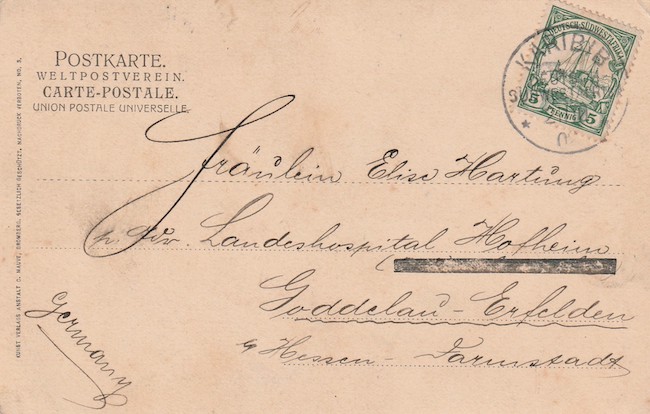 POSTKARTE.
WELTPOSTVEREIN.
CARTE-POSTALE.
UNION POSTALE UNIVERSELLE.
DEUTSCH-SÜDWESTAFRIKA
5 PFENNIG 5
KARIBIB
Fräulein Elise Hartung
Landeshospital Hofheim
Goddelau-Erfelden
Hessen-Darmstadt
Germany
KUNST VERLAGS ANSTALT BROMBERG. GESETZLICH GESCHÜTZT. NACHDRUCK VERBOTEN. NO.